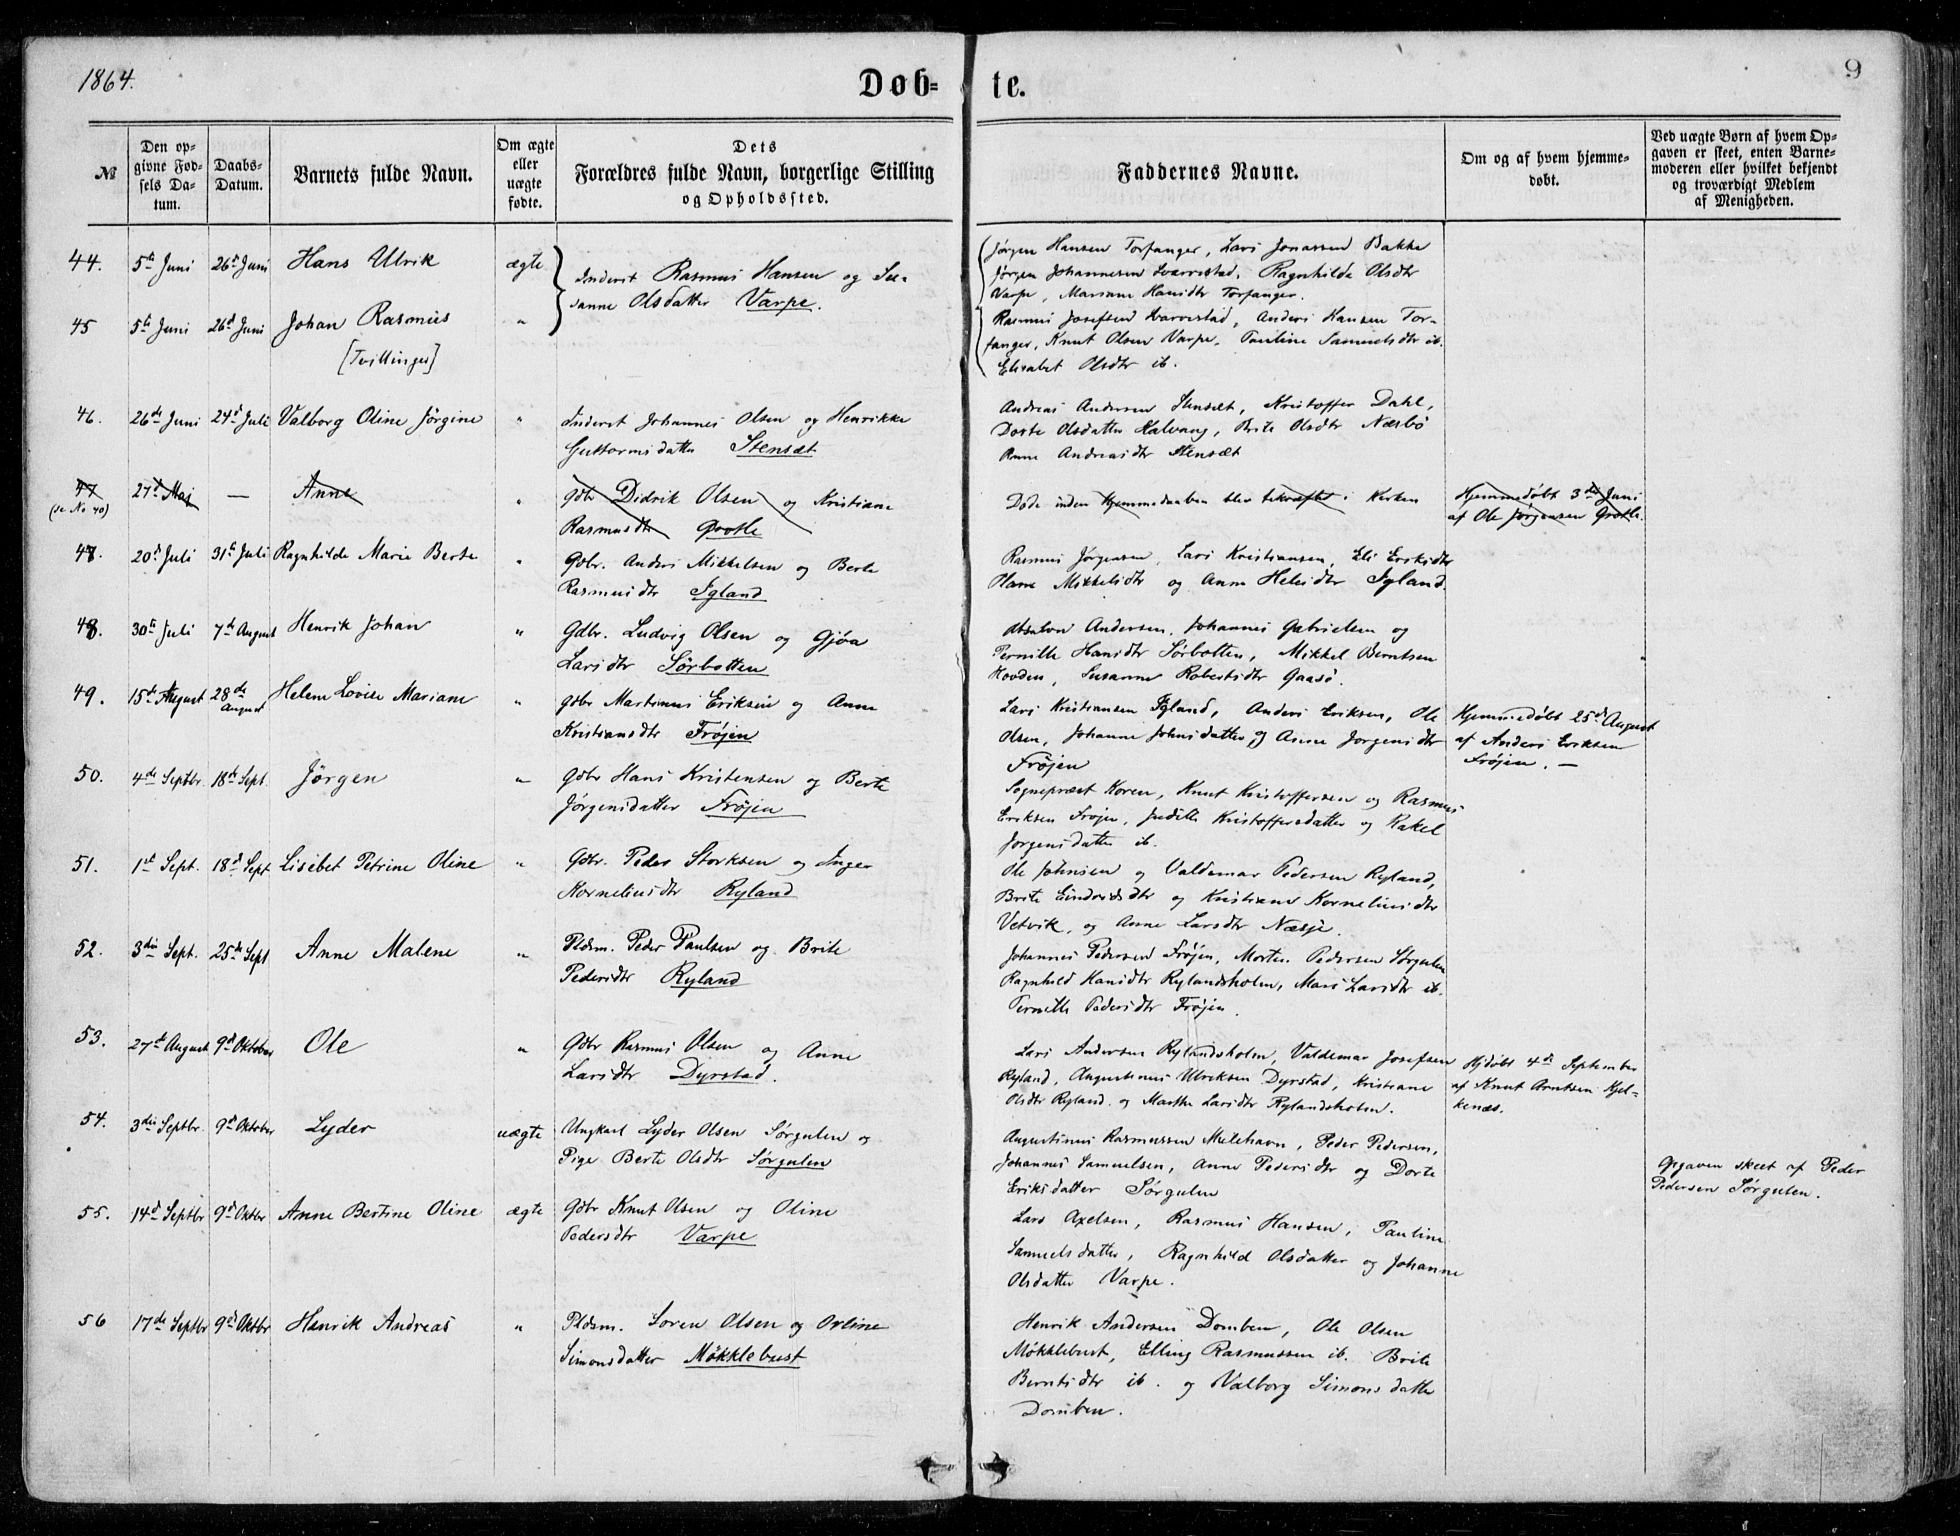 1864.
Døb=
te.
9
№
Den op-
givne Fød-
sels Da-
tum.
Daabs-
Datum.
Barnets fulde Navn.
Om ægte
eller
uægte
fødte.
Dets
Forældres fulde Navn, borgerlige Stilling
og Opholdssted.
Faddernes Navne.
Om og af hvem hjemme-
døbt.
Ved uægte Børn af hvem Op-
gaven er skeet, enten Barne-
moderen eller hvilket bekjendt
og troværdigt Medlem
af Menigheden.
44. 5te Juni 26de Juni Hans Ulrik ægte
Inderst Rasmus Hansen og Su-
sanne Olsdatter Varpe.
Jørgen Hansen Torfanger, Lars Jonassen Bakke
Jørgen Johannesen, Ragnhilde Olsdtr
Varpe, Mariane Hansdtr Torfanger.
45 5te Juni 26de Juni Johan Rasmus "
[Tvillinger]
Rasmus Josefsen, Anders Hansen Tor-
fanger, Knut Olsen Varpe, Pauline Samuelsdtr ib.
Elisabet Olsdtr ib.
46. 26de Juni 24de Juli Valborg Oline Jörgine "
Inderst Johannes Olsen og Henrikke
Guttormsdatter Stensæt
Andreas Andersen Stensæt, Kristoffer Dahl,
Dorte Olsdatter Kalvaag, Brite Olsdtr Næsbö
Anne Andreasdtr Stensæt
47 27de Maj — Anne "
(se No 40)
Gdbr Didrik Olsen og Kristiane
Rasmusdtr Grotle
Døde inden Hjemmedaaben blev bekræftet i Kirken
Hjemmedøbt 3die Juni
af Ole Jørgensen Grotle.
47. 20de Juli 31te Juli Ragnhilde Marie Berte "
Gdbr. Anders Mikkelsen og Berte
Rasmusdtr Igland
Rasmus Jørgensen, Lars Kristiansen, Eli Eriksdtr
Hanne Mikkelsdtr og Anne Helisdtr Igland
48. 30te Juli 7de August Henrik Johan "
Gdbr. Ludvig Olsen og Gjøa
Larsdtr Sørbotten
Absalon Andersen, Johannes Gabrielsen og
Pernille Hansdtr Sørbotten, Mikkel Berntsen
Hovden, Susanne Robertsdtr Gaasö.
49. 15de August 28de August Helene Lovise Mariane "
Gdbr Martinus Eriksen og Anne
Kristiansdtr Frøjen
Lars Kristiansen Igland, Anders Eriksen, Ole
Olsen, Johanne Johnsdatter og Anne Jørgensdtr
Frøjen
Hjemmedøbt 25de August
af Anders Eriksen
Frøjen. —
50. 4de Septbr. 18de Sept. Jörgen "
Gdbr Hans Kristensen og Berte
Jørgensdatter Frøjen
Sognepræst Koren, Knut Kristoffersen og Rasmus
Eriksen Frøjen, Judith Kristoffersdatter og Rakel
Jørgensdatter ib.
51. 1ste Sept. 18de Sept Lisebet Petrine Oline "
Gdbr. Peder Storksen og Inger
Korneliusdtr Ryland
Ole Johnsen og Valdemar Pedersen Ryland,
Brite Eindridsdtr og Kristiane Korneliusdtr
Vetvik, og Anne Larsdtr Næsje.
52. 3die Sept. 25de Sept Anne Malene "
Pldsm. Peder Paulsen og Brite
Pedersdtr Ryland
Johannes Pedersen Frøjen, Morten Pedersen Sørgulen
Ragnhild Hansdtr Rylandsholm, Mari Larsdtr ib.
Pernille Pedersdtr Frøjen.
53. 27de August 9de Oktober Ole "
Gdbr Rasmus Olsen og Anne
Larsdtr Dyrstad.
Lars Andersen Rylandsholm, Valdemar Josefsen
Ryland, Augustinus Ulriksen Dyrstad, Kristiane
Olsdtr Ryland og Marthe Larsdtr Rylandsholm.
Hjdøbt 4de September
af Knut Arntsen Kjel-
kenæs.
54. 3die Septbr. 9de Oktober Lyder uægte
Ungkarl Lyder Olsen Sørgulen og
Pige Berte Olsdtr Sørgulen
Augustinus Rasmussen Mulehavn, Peder Pedersen,
Johannes Samuelsen, Anne Pedersdtr og Dorte
Eriksdatter Sørgulen
Opgaven skeet af Peder
Pedersen Sørgulen.
55. 14de Septbr 9de Oktbr Anne Bertine Oline ægte
Gdbr Knut Olsen og Oline
Pedersdtr Varpe
Lars Axelsen, Rasmus Hansen, Pauline
Samuelsdatter, Ragnhild Olsdatter og Johanne
Olsdatter Varpe.
56 17de Septbr 9de Oktbr Henrik Andreas "
Pldsm. Søren Olsen og Ovline
Simonsdatter Møkklebust
Henrik Andersen Domben, Ole Olsen
Møkklebust, Elling Rasmussen ib. Brite
Berntsdtr ib. og Valborg Simonsdatter
Domben.